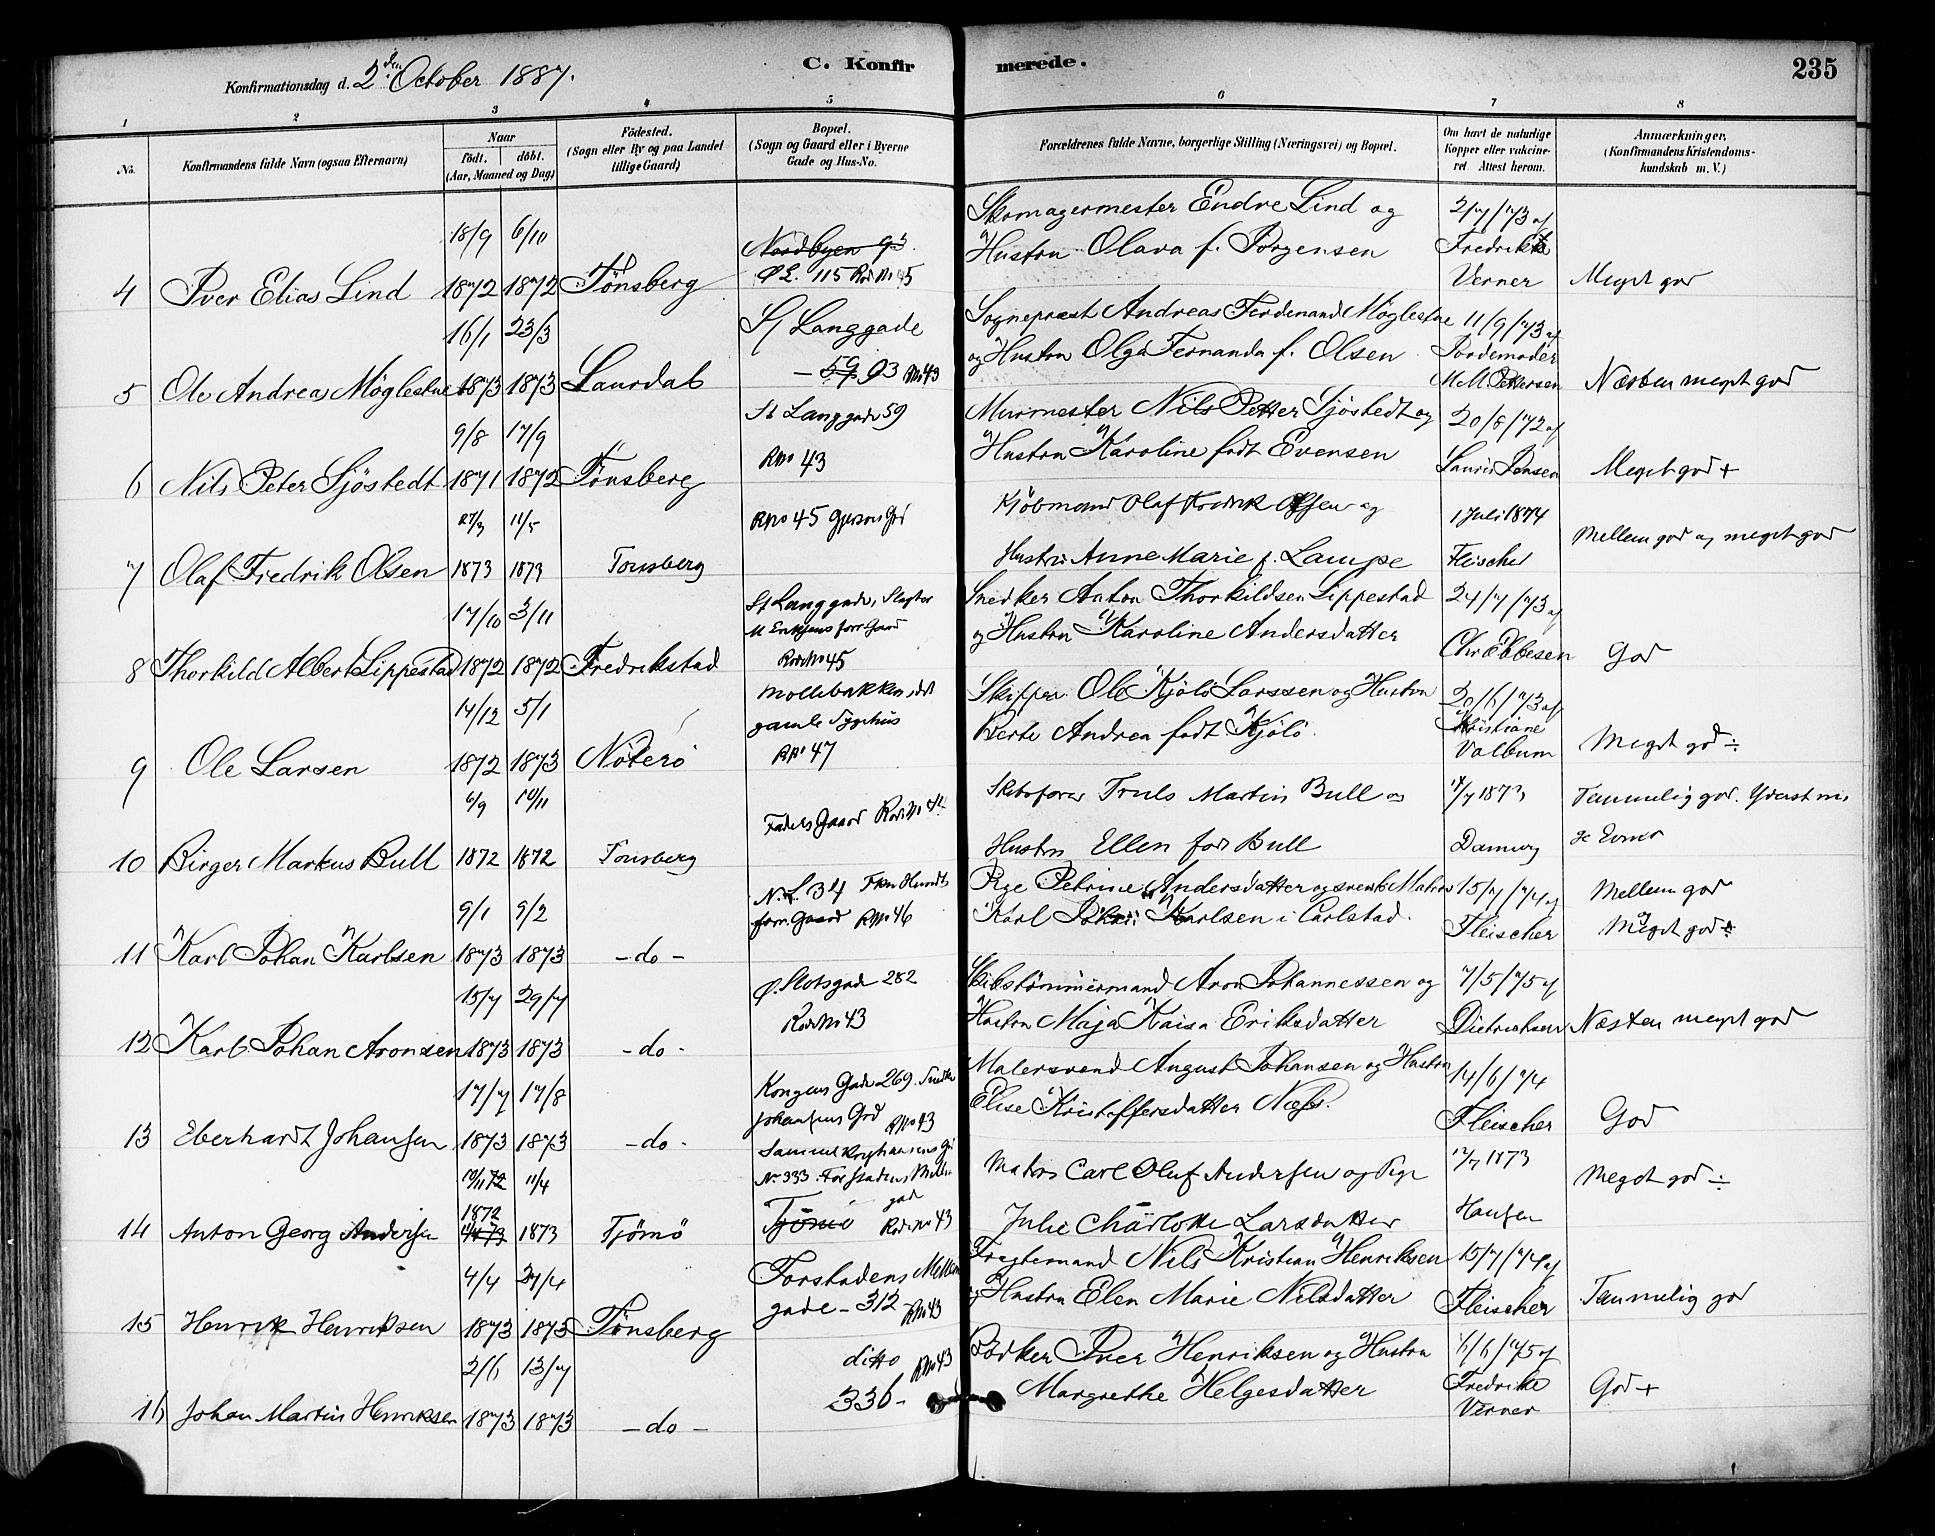 Konfirmationsdag d. 2den October 1887.
C. Konfirmerede.
235
1 2 3 4 5 6 7 8
No.
Konfirmandens fulde Navn (ogsaa Efternavn)
Naar
født. døbt.
(Aar, Maaned og Dag)
Fødested.
(Sogn eller By og paa Landet
tillige Gaard)
Bopæl.
(Sogn og Gaard eller i Byerne
Gade og Hus-No.
Forældrenes fulde Navne, borgerlige Stilling (Næringsvei) og Bopæl.
Om havt de naturlige
Kopper eller vakcine-
ret. Attest herom.
Anmærkninger.
(Konfirmandens Kristendoms-
kundskab m. V.)
18/9 6/10
Nordbyen 93.
Skomagermester Endre Lind og
Hustru Olava f. Jørgensen
2/7/73 af
Fredrikke
Verner
4 Iver Elias Lind 1872 1872 Tønsberg
Ø L. 115 Rode No 45
Meget god
16/1 23/3
St Langgade
93 RNo 43
Sognepræst Andreas Ferdinand Møglestue
og Hustru Olga Fernanda f. Olsen
11/9/73 af
Jordemoder
M. M. Pettersen
5 Ole Andreas Møglestue 1873 1873 Laurdal
Næsten meget god
9/8 17/9
St Langgade 59
RNo 43
Murmester Nils Petter Sjöstedt og
Hustru Karoline født Evensen
20/8/72 af
Lauris Jensen
6 Nils Peter Sjöstedt 1871 1872 Tønsberg
Meget god +
27/3 11/5
RNo 45
Kjøbmand Olaf Fredrik Olsen og
Hustru Anne Marie f. Lampe
1 Juli 1874
Fleischer
7 Olaf Fredrik Olsen 1873 1873 Tønsberg
Mellem god og meget god
17/10 3/11
St Langgade, Slagter
M Eriksens forr Gaard
Rode No 45
Snedker Anton Thorkildsen Lippestad
og Hustru Karoline Andersdatter
24/7/73 af
Chr Ebbesen
8 Thorkild Albert Lippestad 1872 1872 Fredrikstad
God
14/12 5/1
Møllebakken
gamle Sygehus
RNo 47
Skipper Ole Kjølø Larssen og Hustru
Berte Andrea født Kjölö
20/6/73 af
Kristiane
Valbum
9 Ole Larsen 1872 1873 Nøterø
Meget god ÷
6/9 10/11
Skibsfører Truls Martin Bull og
Hustru Ellen fød Bull
1873
10 Birger Markus Bull 1872 1872 Tønsberg
Temmelig god.
Evner
9/1 9/2
N. L. 34
forr. Gaard RNo 46
Pige Petrine Andersdatter og svensk Matros
Karl Johan Karlsen i Carlstad.
15/7/74 af
Fleischer
11 Karl Johan Karlsen 1873 1873 - do -
Mellem god
Meget god ÷
15/7 29/7
Ø. Slotsgade 282
Rode No 43
Skibstömmermand Aron Johannessen og
Hustru Maja Kaisa Eriksdatter
7/5/75 af
Dietrichsen
12 Karl Johan Aronsen 1873 1873 - do -
Næsten meget god
17/7 17/8
Kongens Gade 269.
Johansens Grd RNo 43
Malersvend August Johansen og Hustru
Elise Kristoffersdatter Næss.
14/6/74
Fleischer
13 Eberhardt Johansen 1873 1873 - do -
God
10/11 72 11/4
No 333. Forstadens Mellem
gad
Tjömö Rode No 43
Matros Carl Oluf Andersen og Pige
Julie Charlotte Larsdatter
1873
Hansen
14 Anton Georg Andersen 1872 1873 Tjömö
Meget god ÷
4/4
Forstadens Mellem
gade - 312 - RNo 43
Fragtemand Nils Kristian Henriksen
og Hustru Elen Marie Nilsdatter
15/7/74 af
Fleischer
15 Henrik Henriksen 1873 1873 Tønsberg
Temmelig god
2/6 13/7
ditto RNo 43
336 -
Bödker Iver Henriksen og Hustru
Margrethe Helgesdatter
6/6/75 af
Fredrike
Verner
16 Johan Martin Henriksen 1873 1873 - do -
God +